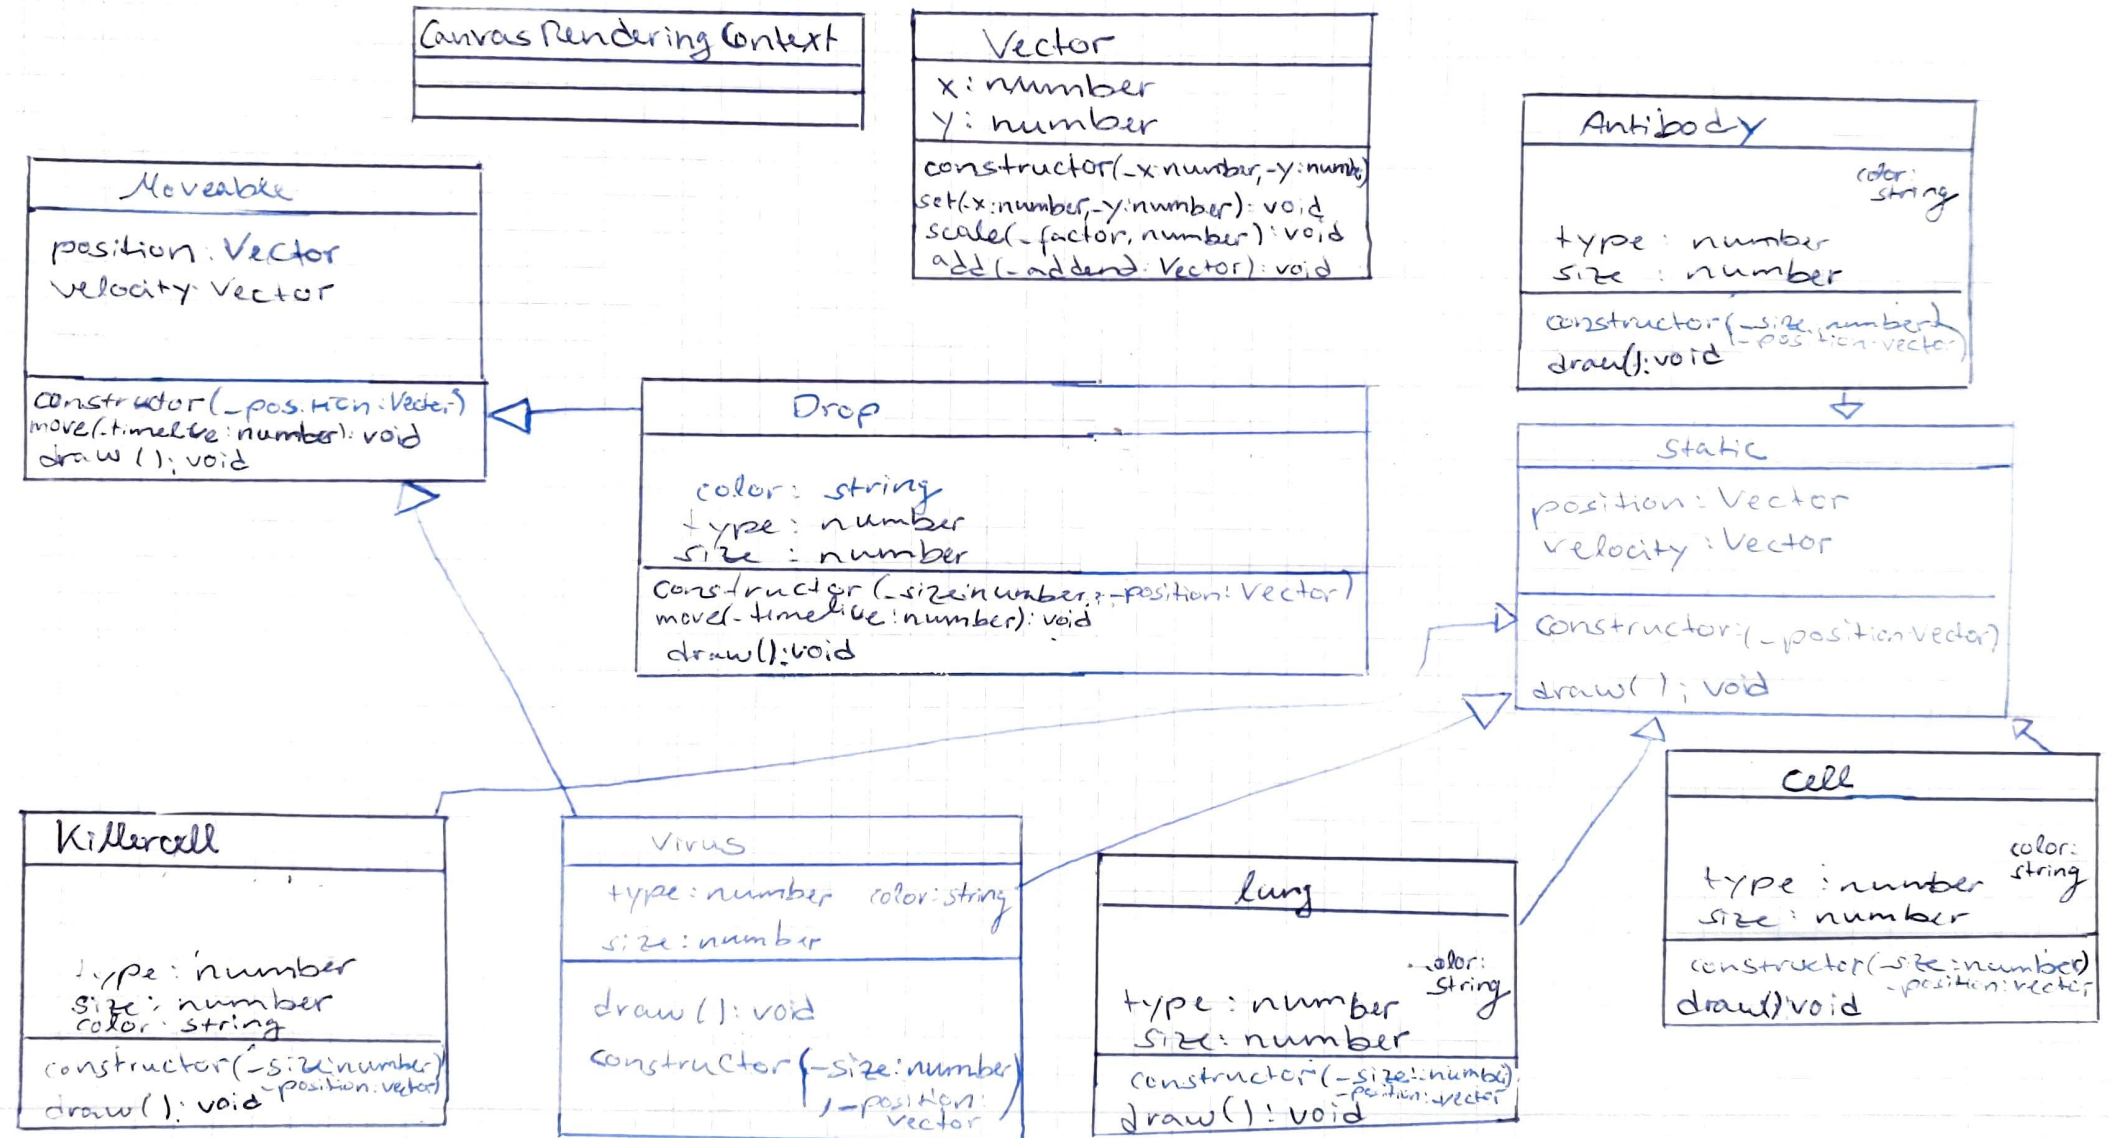 CanvasRenderingContext
Vector
x: number
y: number
constructor(_x:number,_y:numbe)
set(_x:number,_y:number): void
scale(_factor, number): void
add(_addend: Vector): void
Antibody
color:
string
type: number
size: number
constructor(_size, number)
(_position:vector)
draw():void
Moveable
position: Vector
velocity: Vector
constructor(_position:Vector)
move(_timeslice:number): void
draw(): void
Drop
color: string
type: number
size: number
constructor(_size:number, _position: Vector)
move(_timeslice:number): void
draw():void
Static
position: Vector
velocity: Vector
constructor:(_position:Vector)
draw(): void
Killercell
type: number
size: number
color: string
constructor(_size:number)
_position:vector)
draw(): void
Virus
type: number color:string
size: number
draw(): void
constructor(_size:number)
,_position:
vector
lung
color:
string
type: number
size: number
constructor(_size:number)
_position:vector
draw(): void
cell
color:
string
type: number
size: number
constructor(_size:number)
_position:vector
draw():void